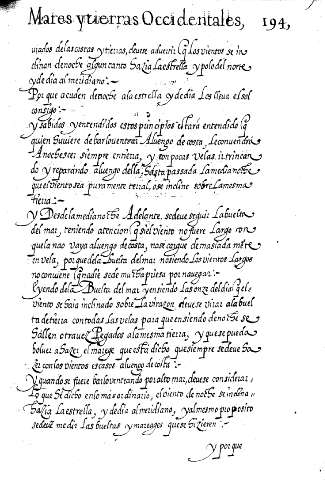 Mares y tierras Occidentales, 194,
uiados de las costas y tierras, deuese aduertir q̃ los vientos se in
clinan de noche algun tanto hazia la estrella y polo del norte
y de dia al meridiano:~
Por que acuden de noche a la estrella y de dia los lleua el sol
consigo:~
Y sabidos y entendidos estos principios estara entendido q̃
quien huuiere de barlouentear a luengo de costa, le conuendra
Anochesser siempre en tierra, y con pocas velas
do y reparando a luengo della, hasta passada la media noche
que el viento sea puramente terral, o se incline sobre la mesma
tierra:~
Y Desde la media noche Adelante, se deue seguir La buelta
del mar, teniendo atencion q̃ si el viento no fuere Largo con
que la nao vaya a luengo de costa, no se cargue demasiadamẽte
en vela, por que de la buelta del mar no siendo Los vientos Largos
no conuiene q̃ nadie se de mucha priesa por nauegar:~
Yendo de la Buelta del mar y en siendo Las onze del dia q̃ el
viento se haia inclinado sobre La virazon, deuese virar a la buel
ta de tierra con todas Las velas para que en siendo de noche se
hallen otra uez Pegados a la misma tierra, y que se pueda
boluer a hazer el que esta dicho que siempre se deue ha
zer con los vientos escasos a luengo de costa:~
Y quando se fuere barlouenteando por alto mar, deuese considerar,
Lo que he dicho en lo mas ordinario, el viento de noche se inclina
hazia La estrella, y de dia al meridiano, y al mesmo proposito
se deuẽ medir Las bueltas y que se hizieren:~
y por que